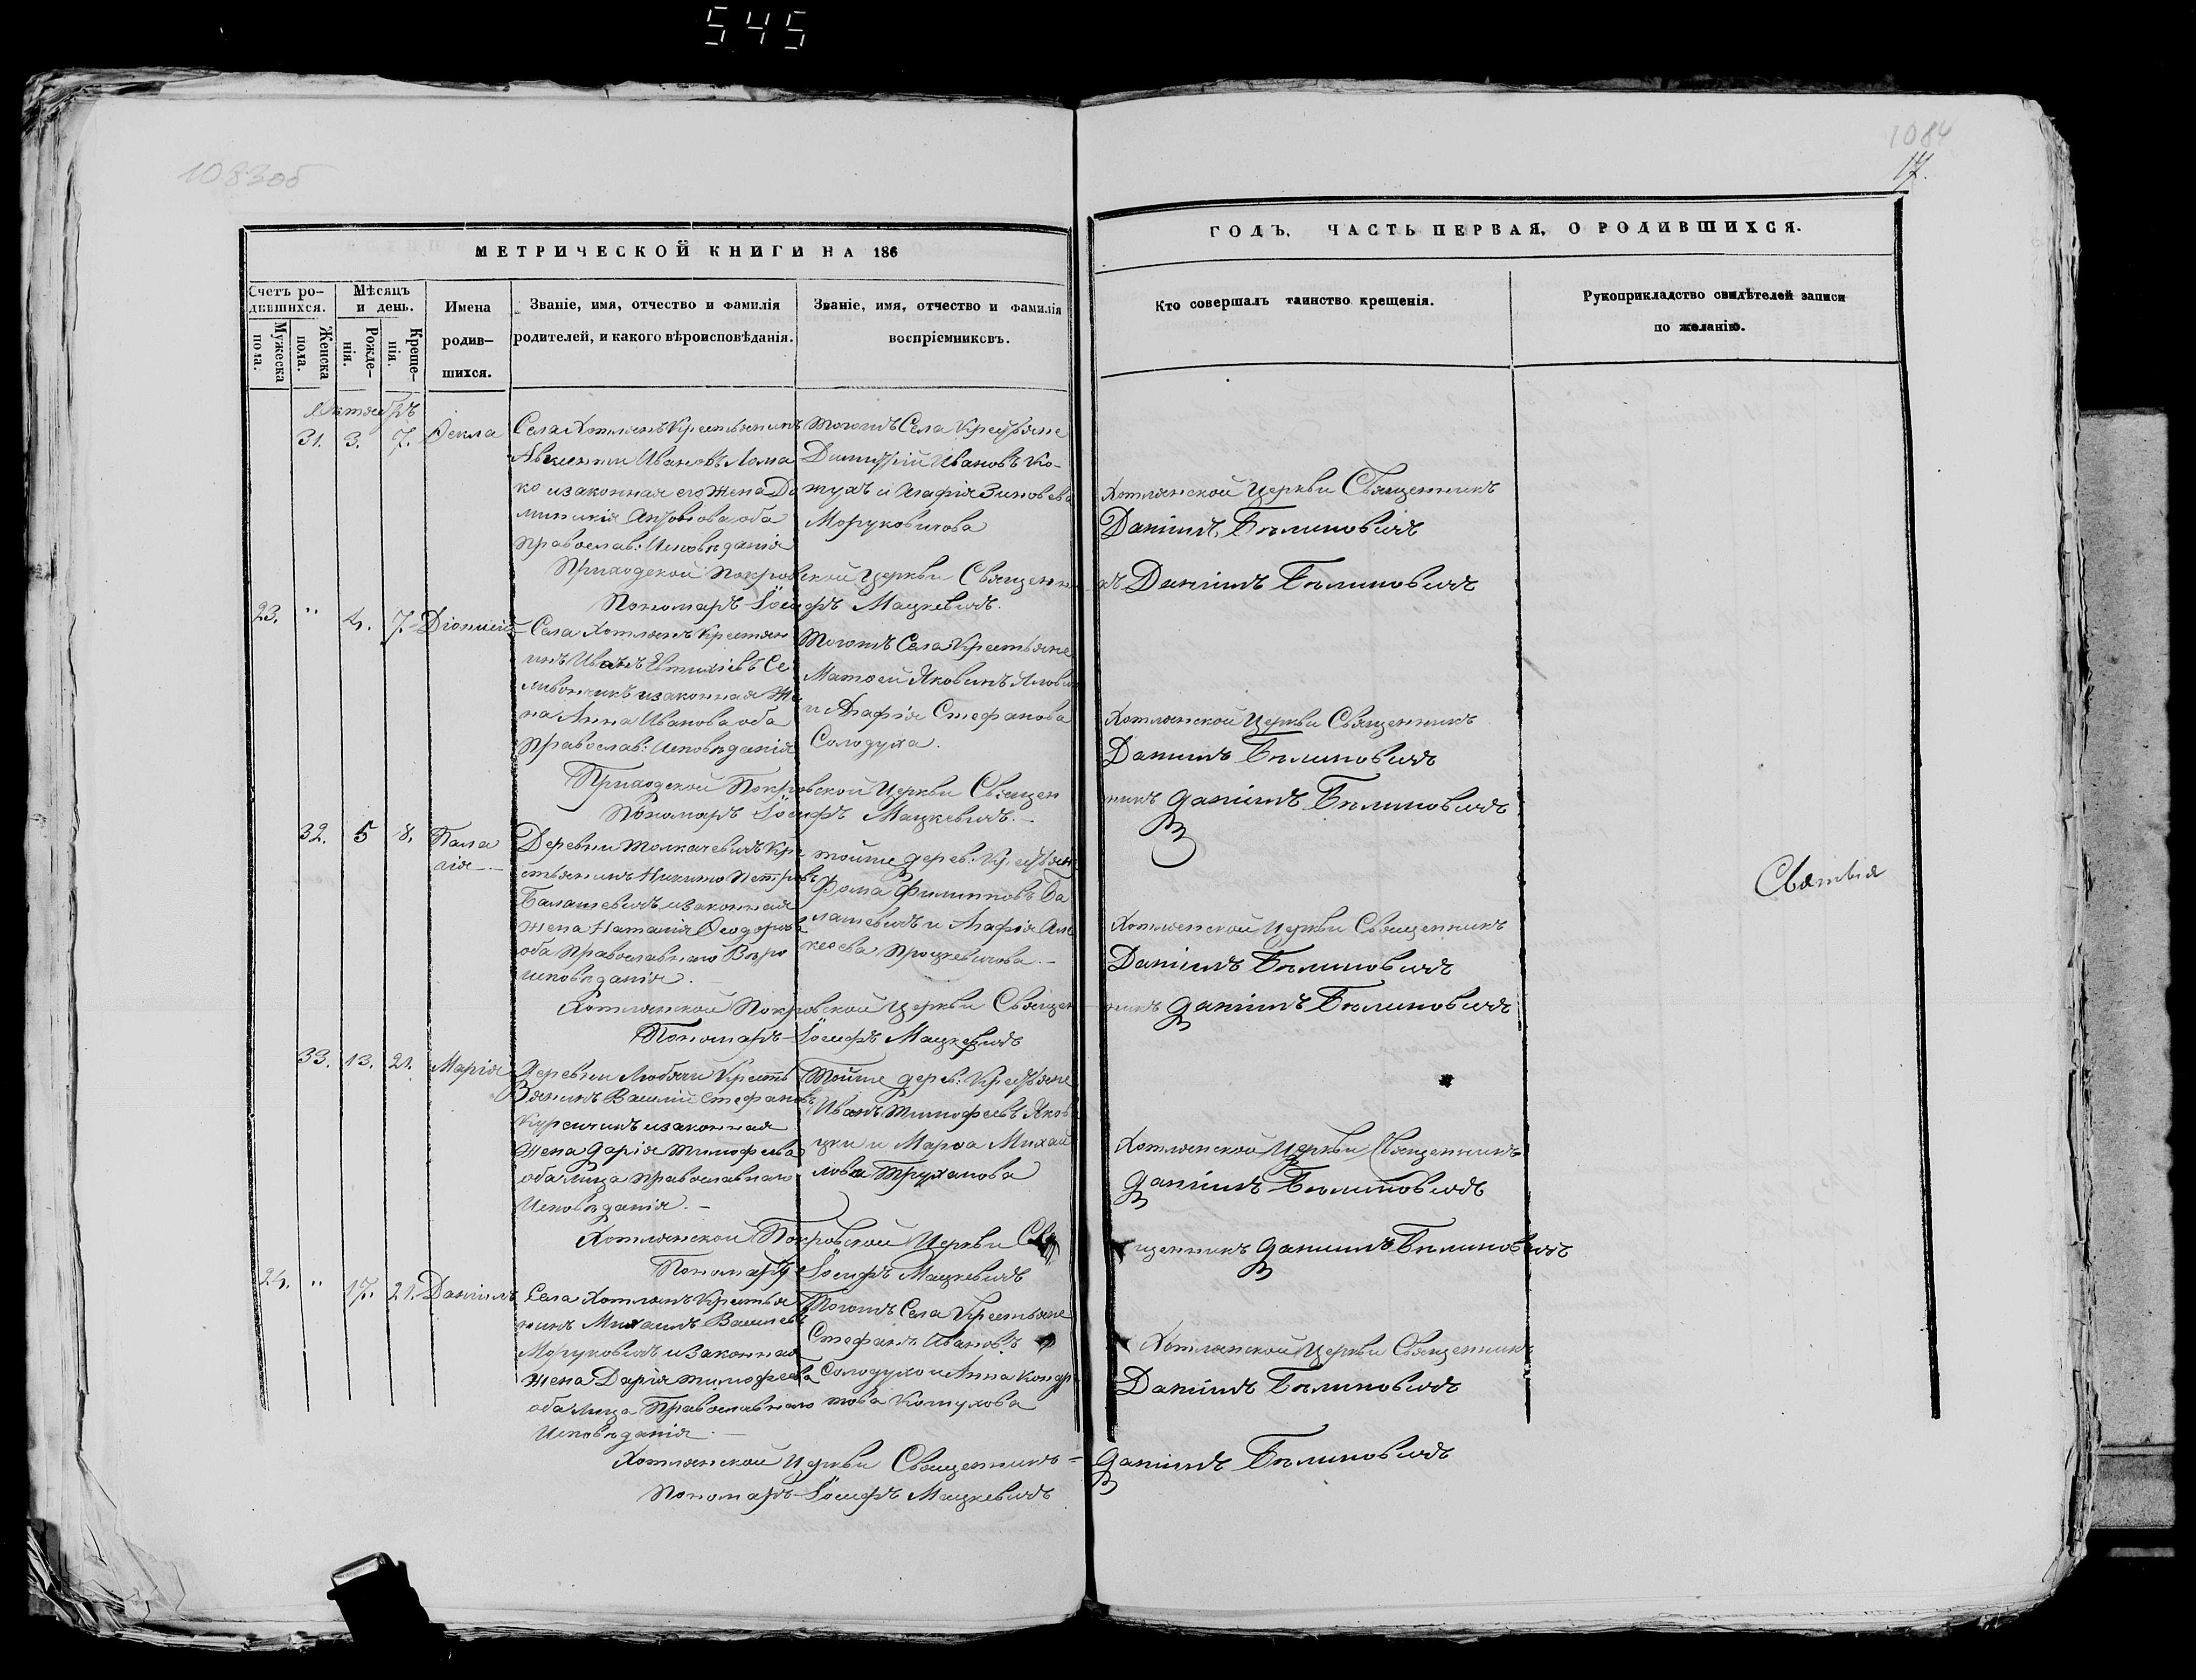 545
1083об
1084
17.
МЕТРИЧЕСКОЙ КНИГИ НА 186
ГОДЪ, ЧАСТЬ ПЕРВАЯ, О РОДИВШИХСЯ.
Счетъ ро-
дившихся.
Мужеска
пола.
Женска
пола.
Мѣсяцъ
и день.
Рожде-
нія.
Креще-
нія.
Имена
родив-
шихся.
Званіе, имя, отчество и фамилія
родителей, и какого вѣроисповѣданія.
Званіе, имя, отчество и фамилія
воспріемниковъ.
Кто совершалъ таинство крещенія.
Рукоприкладство свидѣтелей записи
по желанію.
Октябрь
31. 3. 7. Ѳекла
Села Хотлянъ Крестьянинъ
Иванова Лома
ко изаконная его жена До
оба
Православ: Исповѣданія
Тогожъ Села Крестьяне
Димитрій Ивановъ Ко-
тухъ и Агафія Зиновьева
Моруковичова
Хотлянской Церкви Священникъ
Даніилъ Бѣлиновичъ
Приходской Покровской Церкви Священникъ Даніилъ Бѣлиновичъ
Пономаръ Іосифъ Мацкевичъ.
23. " 4. 7. Діонисій
Села Хотлянъ Крестьян
инъ Иванъ Евтихіевъ Се
ливончикъ изаконная Же
на Анна Иванова оба
Православ: Исповѣданія
Тогожъ Села Крестьяне
Матѳей Яковинъ
и Агафія Стефанова
Солодуха.
Хотлянской Церкви Священникъ
Даніилъ Бѣлиновичъ
Приходской Покровской Церкви Священникъ Даніилъ Бѣлиновичъ
Пономаръ Іосифъ Мацкевичъ.
32. 5 8. Пала
гія
Деревни Толкачевичъ Кре
стьянинъ Никита Петровъ
Балашевичъ изаконная
жена Наталія Ѳеодорова
оба Православнаго Вѣро
исповѣданія.
тойже дерев: Крестьяне
Фома Филиповъ Ба
лашевичъ и Агафія Але
ксеева Процкевичова.
Святыя
Хотлянской Церкви Священникъ
Даніилъ Бѣлиновичъ
Хотлянской Покровской Церкви Священникъ Даніилъ Бѣлиновичъ
Пономаръ Іосифъ Мацкевичъ
33. 13. 21. Марія
Деревни Любячи Кресть
янинъ Василій Стефановъ
изаконная
жена Дарія Тимофеева
оба лица Православнаго
Исповѣданія.
Тойже дерев: Крестьяне
Иванъ Тимофеевъ Яков
цки и Марѳа Михай
лова Труханова
Хотлянской Церкви Священникъ
Даніилъ Бѣлиновичъ
Хотлянской Покровской Церкви Священникъ Даніилъ Бѣлиновичъ
Пономаръ Іосифъ Мацкевичъ
24. " 17. 21. Даніилъ
Села Хотлянъ Крестья
нинъ Михаилъ Васильевъ
Моруковичъ изаконная
жена Дарія Тимофеева
оба лица Православнаго
Исповѣданія.
Тогожъ Села Крестьяне
Стефанъ Ивановъ
Солодухо и Анна Кондр
това Котухова
Хотлянской Церкви Священникъ
Даніилъ Бѣлиновичъ
Хотлянской Церкви Священникъ Даніилъ Бѣлиновичъ
Пономаръ Іосифъ Мацкевичъ